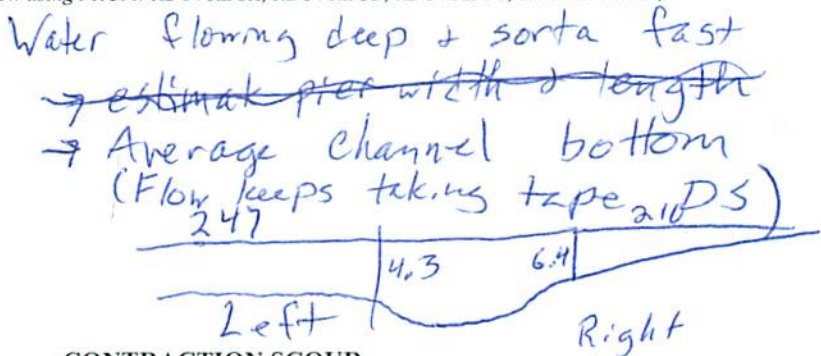 Water flowing deep & sorta fast
→ estimate pier width & length
→ Average channel bottom
(Flow keeps taking tape DS)
247 210
4.3 6.4
Left Right
CONTRACTION SCOUR